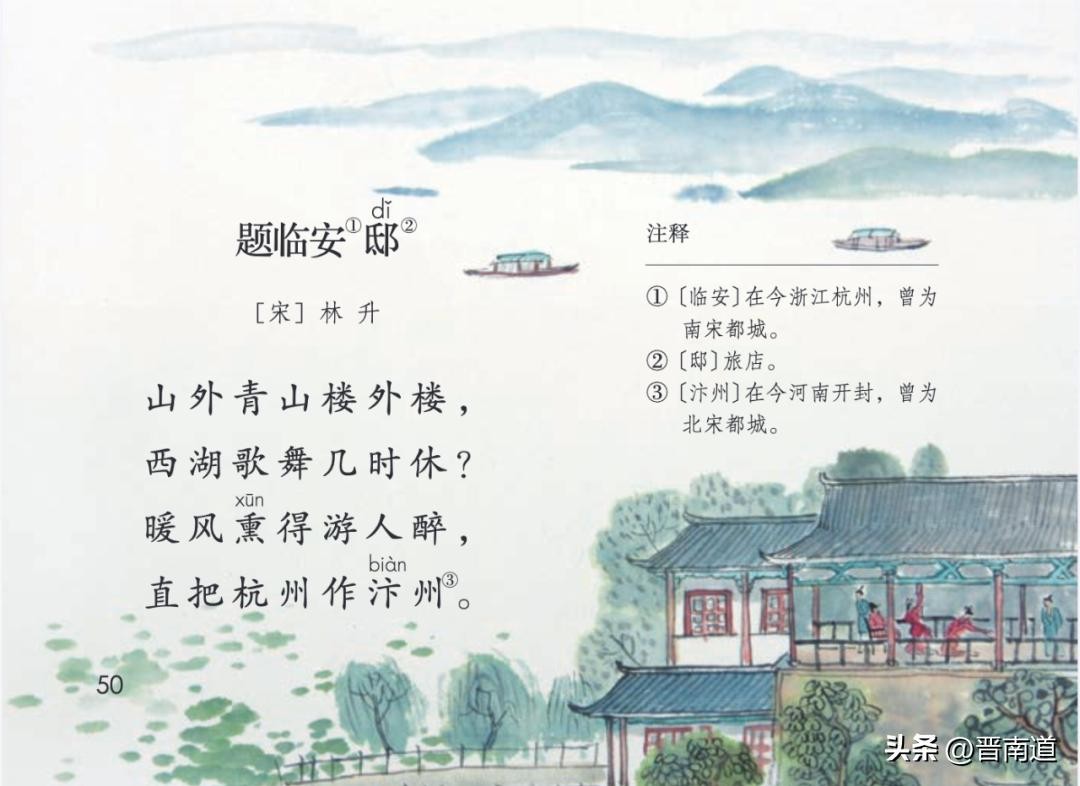 dǐ
题临安①邸②
［宋］林 升
山外青山楼外楼，
西湖歌舞几时休？
xūn
暖风熏得游人醉，
biàn
直把杭州作汴州③。
注释
①〔临安〕在今浙江杭州，曾为
南宋都城。
②〔邸〕旅店。
③〔汴州〕在今河南开封，曾为
北宋都城。
50
头条 @晋南道